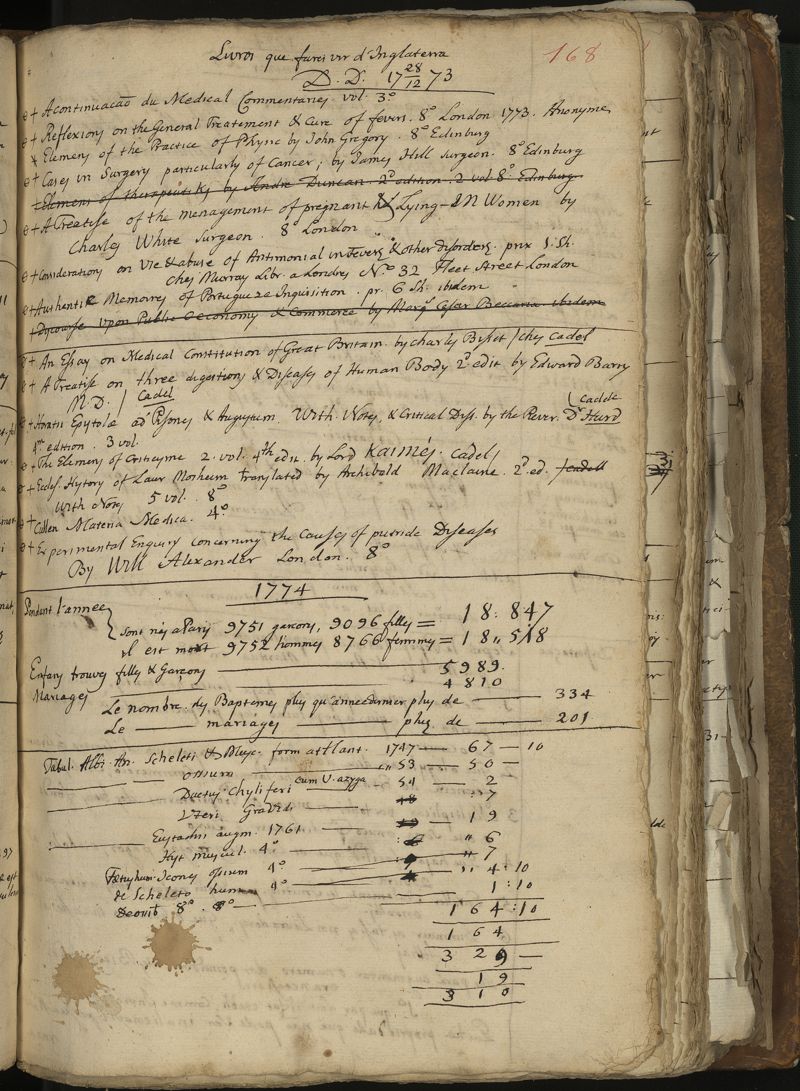 168
Livros que fares vir d'Inglaterra
D. D. 17 28/12 73
+ A continuacaõ du Medical Commentaries vol. 3º
+ Reflexions on the General Treatement & Cure of fevers. 8º London 1773. Anonyme
+ Elemens of the Practice of Physic by John Gregory. 8º Edinburg
+ Cases in Surgery particularly of Cancer; by James Hill Surgeon. 8º Edinburg
Elemens of therapeutiks by Andre Duncan 2º edition. 2 vol 8º Edinburg
+ A Treatise of the menagement of pregnant & Lying-In Women by
Charles White Surgeon. 8º London
+ Considerations on Use & abuse of Antimonial in Fevers & other disorders. prix 1. Sh.
ches Murray Libr. a Londres Nº 32 Fleet Street London
+ Authentic Memoires of Portugueze Inquisition. pr. 6 Sh. ibidem
+ Discourse upon Public Oeconomy & Commerce by Marqs Cesar Beccaria ibidem
+ An Essay on Medical Constitution of Great Britain by Charles Bisset / ches Cadel
+ A Treatise on three digestions & Diseases of Human Body 2d edit. by Edward Barry
M.D. / Cadel
+ Horatii Epistolæ ad Pisones & Augustum. With Notes, & Critical Diss. by the Rever. Dr Hurd (Cadele
4th edition. 3 vol.
+ The Elements of Criticisme 2. vol. 4th edit. by Lord Kaimes. Cadel/
+ Eccles. History of Laur Mosheim translated by Archibold Maclaine. 2d. ed. /Cadell
With Notes 5 vol. 8º
+ Cullen Materia Medica. 4º
+ Experimental Enquiry concerning the Causes of putride Diseases
By Will Alexander London. 8º
1774
Pendant l'année
sont nés a Paris 9751 garcons, 9096 filles = 18:847
il est mort 9752 hommes 8766 femmes = 18,,518
Enfans trouves filles & Garcons 5989.
Mariages 4810
Le nombre des Baptemes plus qu'anneedernier plus de 334
Le mariages plus de 201
Tabul. Albi. An. Scheleti & Musc. form atlant. 1747 67 10
ossium ,, 53 50
Ductus Chyliferi cum V. azyga 54 2
Uteri Gravidi 7
Eustachii augm. 1761 19
Hist muscul. 4º ,, 6
,, 7
Icones ossium 4º ,, 4:10
de Scheleto human 4º 1:10
8º 8º 164:10
164
329
19
310